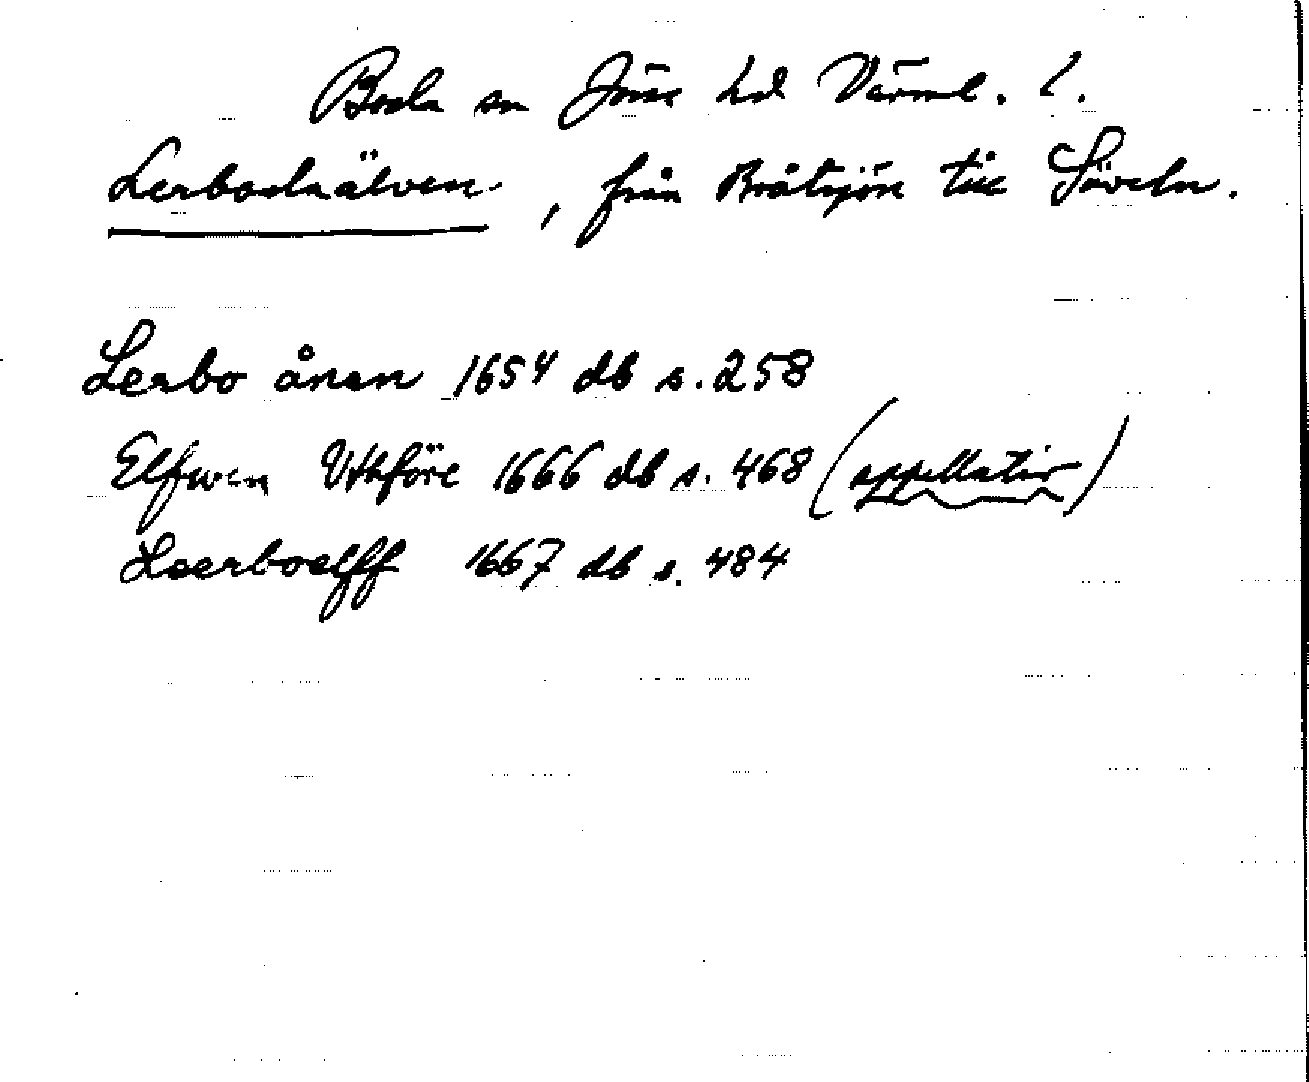 Boda sn Jösse hd Värml. l.
Lerbodaälven, från Bråtsjön till Säveln.
Lerbo ånan 1654 db s. 258
Elfwen Vthföre 1666 db s. 468 (appellativ)
Leerboelff 1667 db s. 484